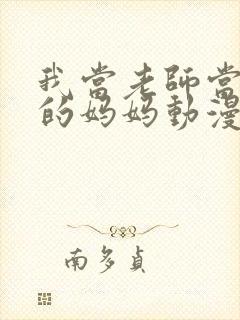 我當老師當
的妈妈動漫
南多貞